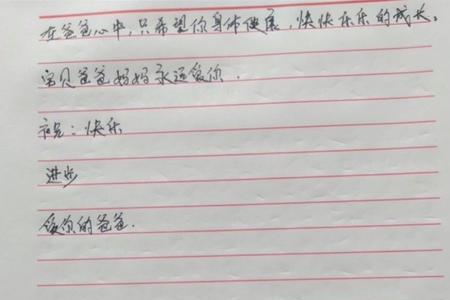 在爸爸心中，只希望你身体健康，快快乐乐的成长。
宝贝爸爸妈妈永远爱你.
祝：快乐
进步
爱你的爸爸.